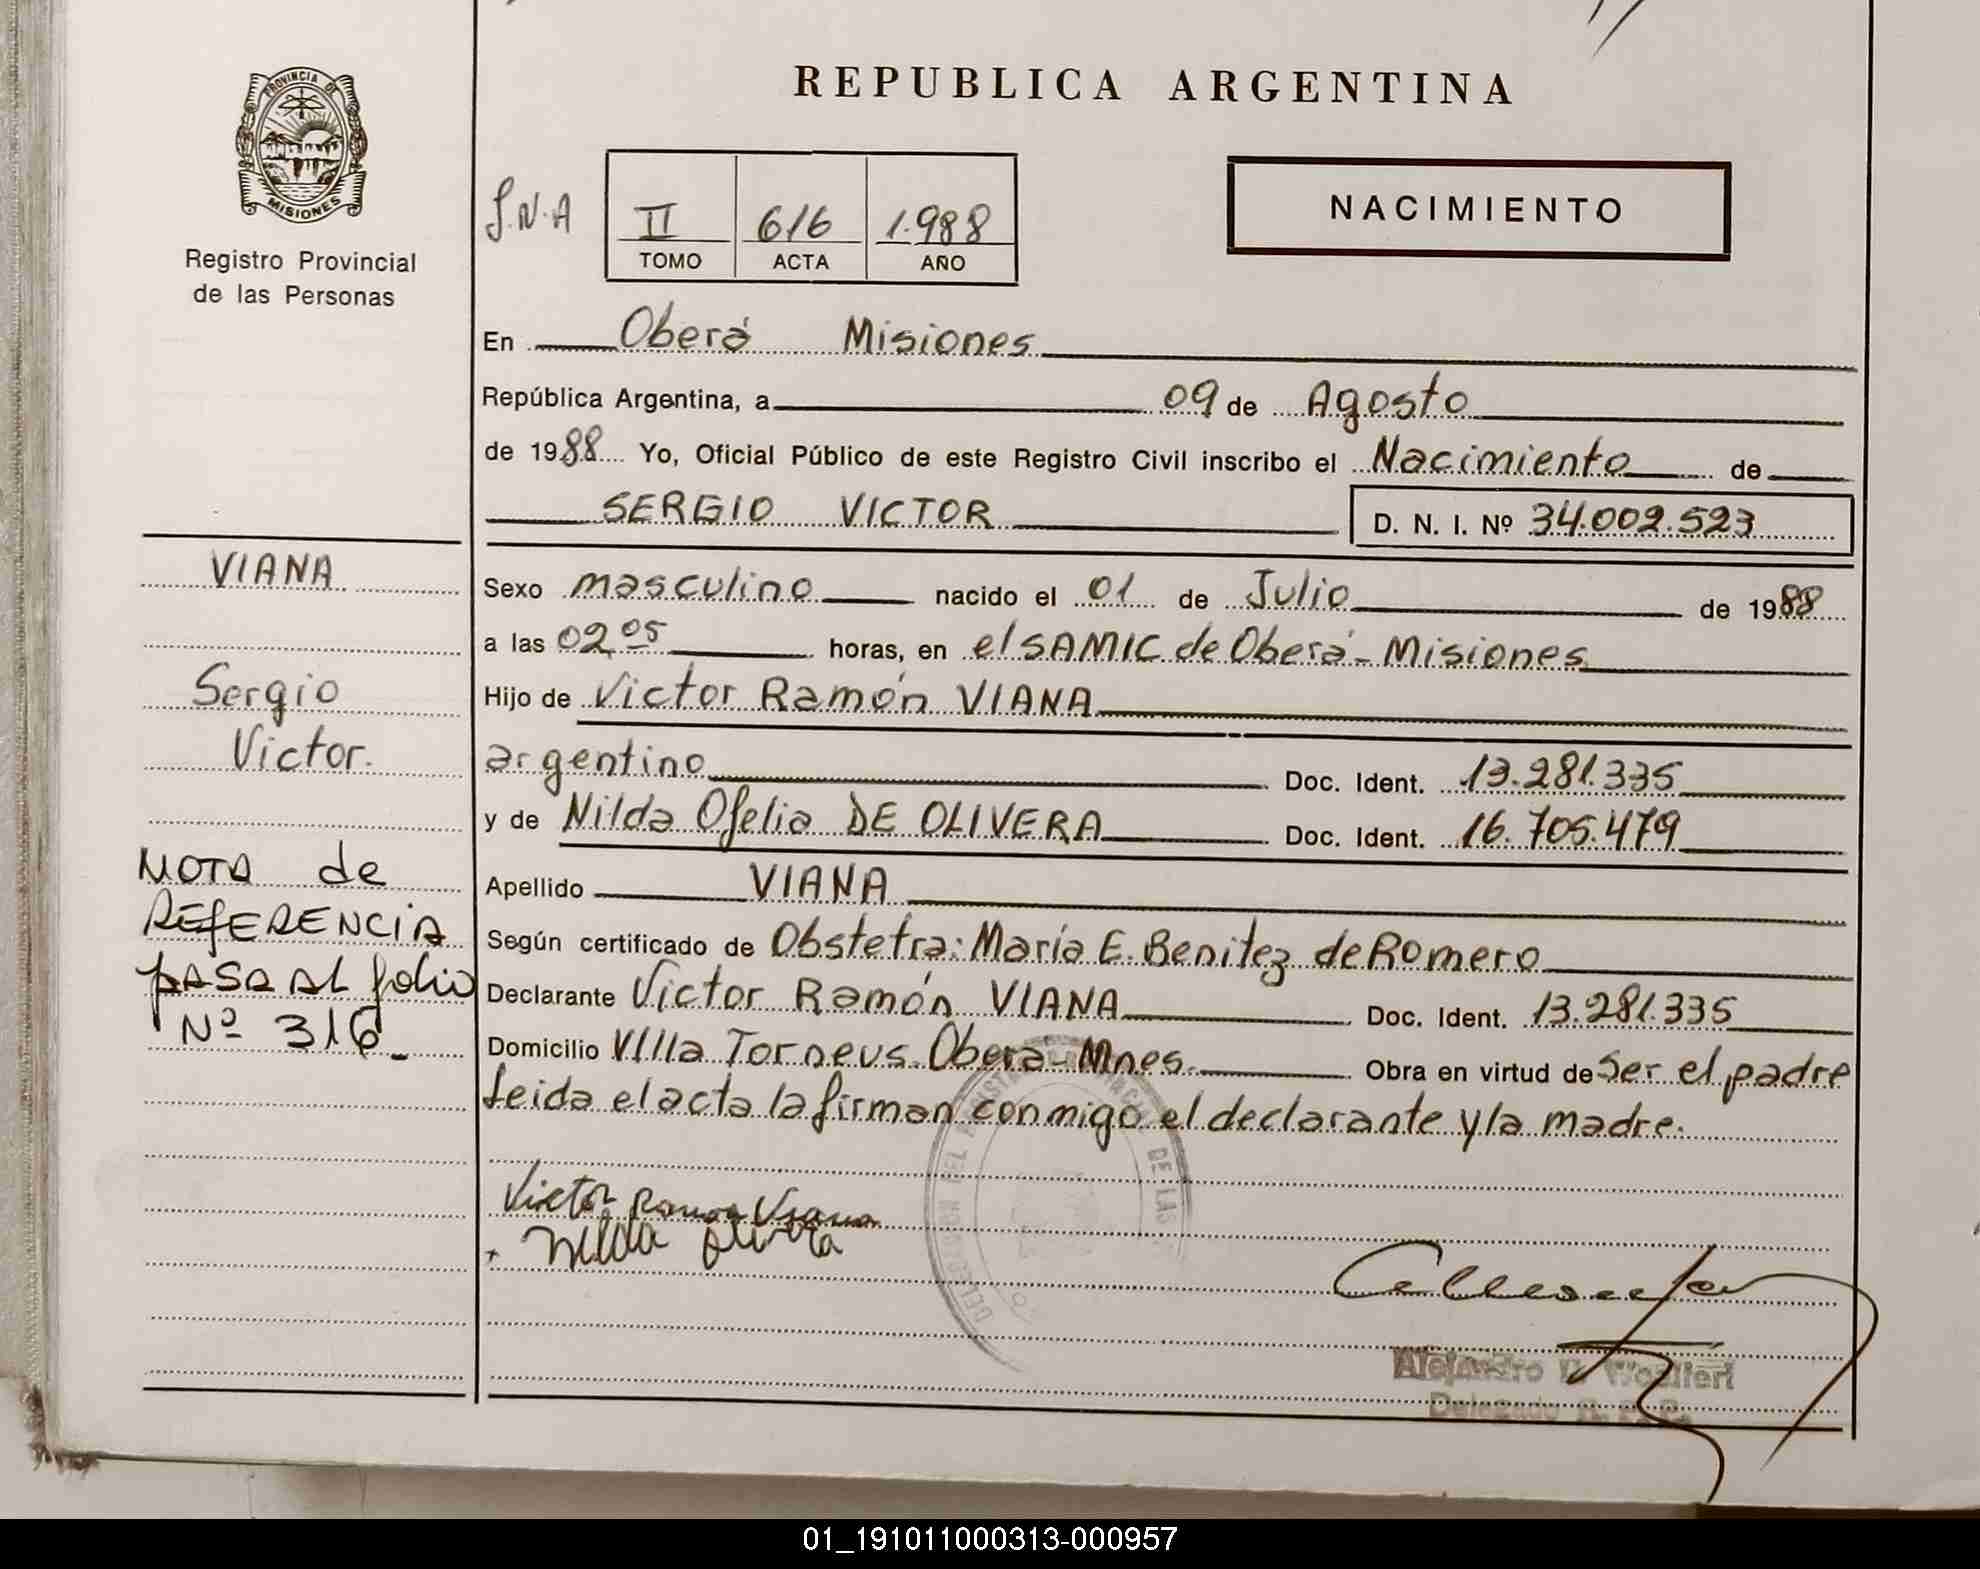 REPUBLICA ARGENTINA
PROVINCIA DE
MISIONES
Registro Provincial
de las Personas
S.N.A
II 616 1.988
TOMO ACTA AÑO
NACIMIENTO
En Oberá Misiones
República Argentina, a 09 de Agosto
de 1988 Yo, Oficial Público de este Registro Civil inscribo el Nacimiento de
SERGIO VICTOR D. N. I. Nº 34.002.523
VIANA
Sergio
Victor.
NOTA de
REFERENCIA
PASA AL folio
Nº 316
Sexo masculino nacido el 01 de Julio de 1988
a las 02,05 horas, en el SAMIC de Oberá - Misiones
Hijo de Victor Ramón VIANA
argentino Doc. Ident. 13.281.335
y de Nilda Ofelia DE OLIVERA Doc. Ident. 16.705.479
Apellido VIANA
Según certificado de Obstetra: María E. Benitez de Romero
Declarante Victor Ramón VIANA Doc. Ident. 13.281.335
Domicilio Villa Torneus. Oberá - Mnes. Obra en virtud de Ser el padre
Leida el acta la firman conmigo el declarante y la madre.
Victor Ramon Viana
Nilda Olivera
DE LAS
Alejandro
Delegado R. P. P.
01_191011000313-000957